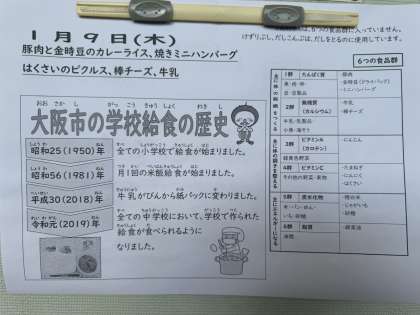 1月9日(木)
豚肉と金時豆のカレーライス、焼きミニハンバーグ
はくさいのピクルス、棒チーズ、牛乳
は、6つの食品群に入っていません。
けずりぶし、だしこんぶは、だしをとるのに使用しています。
大阪市の学校給食の歴史
おおさかし がっこうきゅうしょく れきし
昭和25(1950)年 全ての小学校で給食が始まりました。
昭和56(1981)年 月1回の米飯給食が始まりました。
平成30(2018)年 牛乳がびんから紙パックに変わりました。
令和元(2019)年 全ての中学校において、学校で作られた
給食が食べられるように
なりました。
6つの食品群
1群 たんぱく質
・豚肉
・金時豆(ドライパック)
・ミニハンバーグ
2群 無機質
(カルシウム)
・牛乳
・棒チーズ
牛乳・乳製品
3群 ビタミンA
(カロテン)
・にんじん
緑黄色野菜
4群 ビタミンC
その他の野菜・果物
・たまねぎ
・にんにく
・はくさい
5群 炭水化物
・精白米
・じゃがいも
・砂糖
6群 脂質
油脂